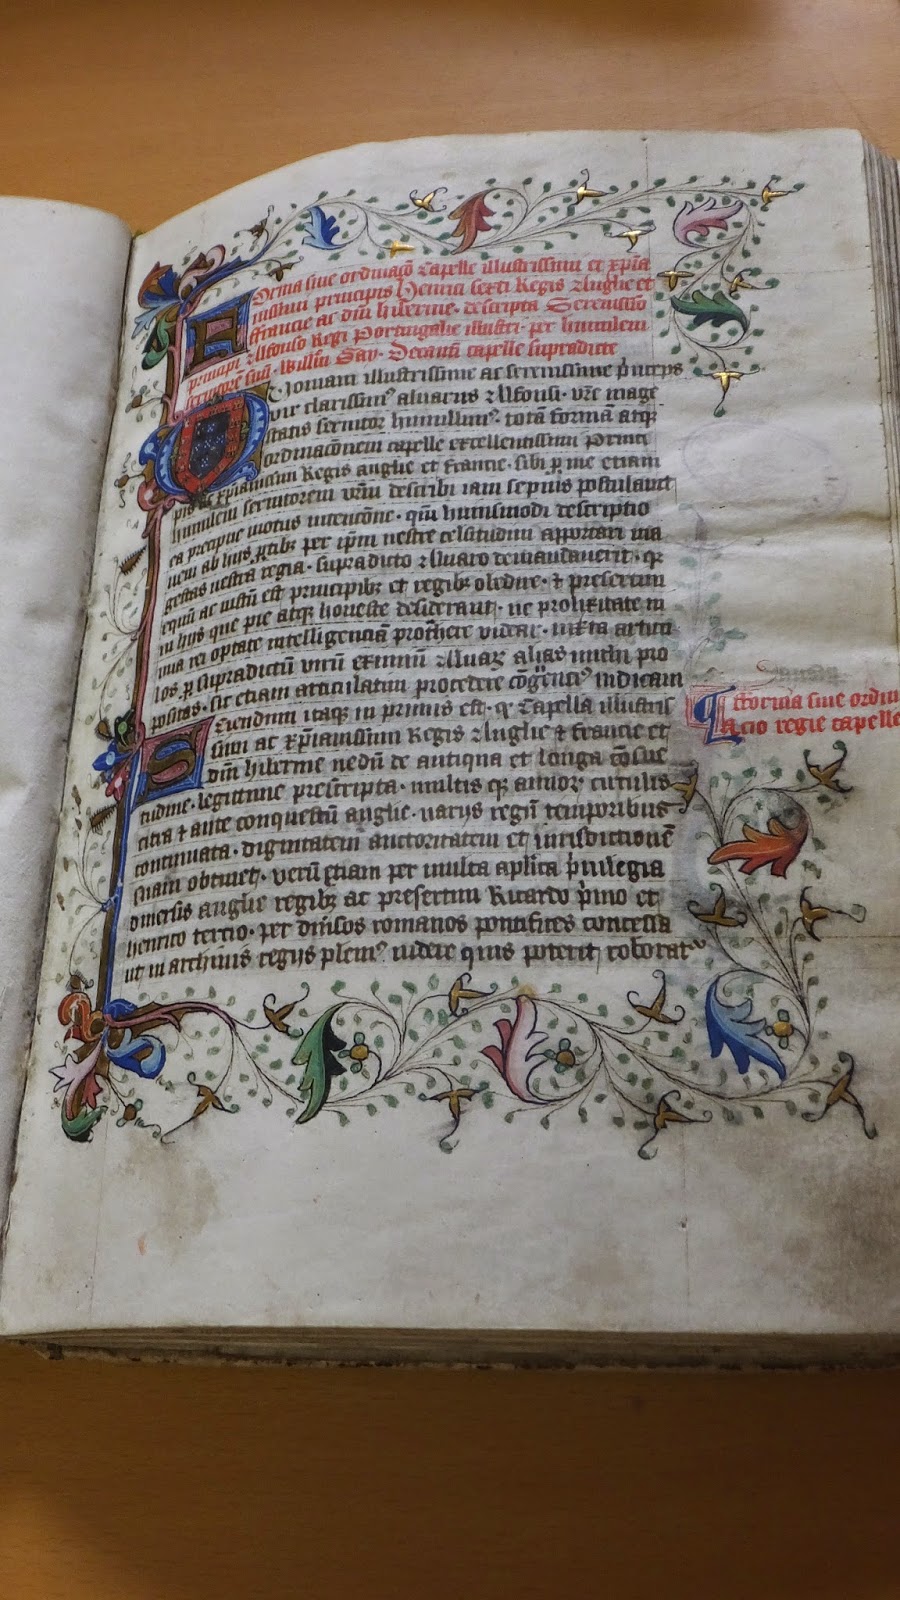 Forma siue ordinacō Capelle illustrissimi et xp̄ia
nissimi principis Henrici sexti Regis Anglie et
ffrancie ac dn̄i hibernie. descripta Serenissīo
principi Alfonso Regi Portugalie illustri. per humilem
seruitorē suū. Willm̄ Say. Decanū capelle supradicte
Quoniam illustrissime ac serenissime p̄nceps
vir clarissimꝰ aluarus Alfonsi. vr̄e mage
statis seruitor humillimꝰ. totā formā atqꝫ
ordinacōnem capelle excellentissimi Princi
pis xp̄ianissimi Regis anglie et francie. sibi ꝑ me etiam
humilem seruitorem vr̄m describi iam sepius postulauit
ea precipue motus intencōne. qm̄ huiusmodi descriptio
nem ab hijs ꝑtibꝫ per ip̄m vestre celsitudini apportari ma
gestas vestra regia. supradicto Aluaro demandauerit. qꝛ
equū ac iustū est principibꝫ et regibꝫ obedire. ⁊ presertim
in hijs que pie atqꝫ honeste desiderant. ne prolixitate in
mia rei optate intelligenciā proh̄ere videar. iuxta articu
los. ꝑ supradictū virū eximiū Aluaꝝ alias michi pro
positos. sic etiam articulatim procedere cōgruenciꝰ iudicaui
Sciendum itaqꝫ in primis est. qꝫ Capella illustris
simi ac xp̄ianissimi Regis Anglie ⁊ francie et
dn̄i hibernie nedū de antiqua et longa cōsue
tudine. legittime prescripta. multis eqꝫ annoꝝ curriculis
citra ⁊ ante conquestū anglie. varijs regū temporibus
continuata. dignitatem auctoritatem et iurisdictionē
suam obtinet. verū etiam per multa aplīca p̄uilegia
diuersis anglie regibꝫ ac presertim Ricardo p̄mo et
henrico tercio. per diūsos romanos pontifices concessa
ut in archiuis regijs pleniꝰ videre quis poterit roboratur
fforma siue ordin
acio regie capelle